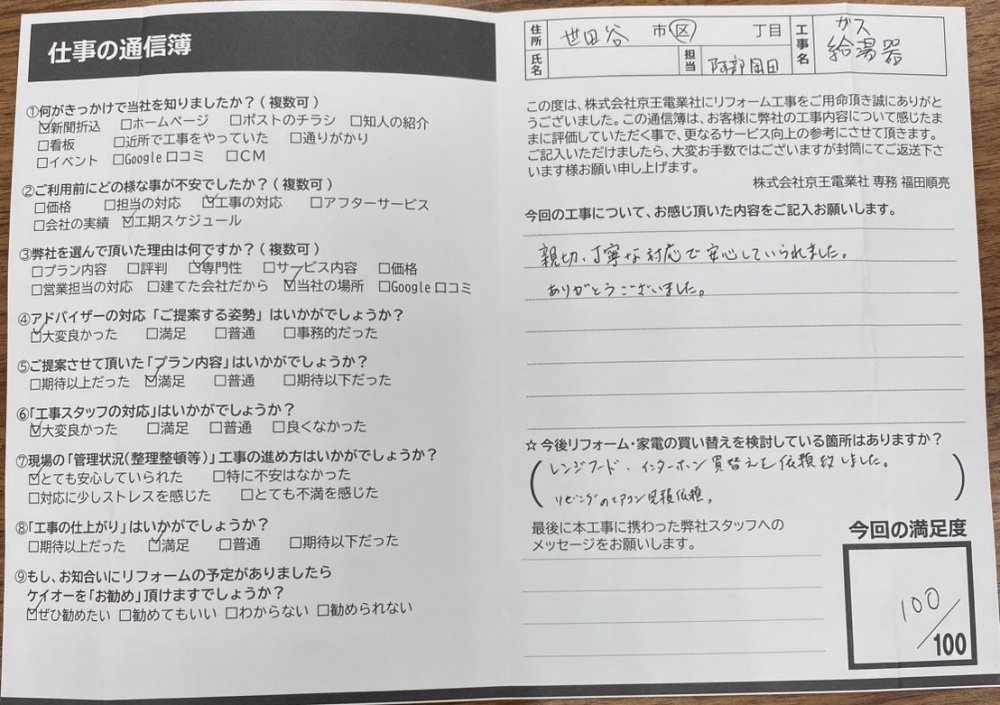 仕事の通信簿
①何がきっかけで当社を知りましたか?(複数可)
☑新聞折込 □ホームページ □ポストのチラシ □知人の紹介
□看板 □近所で工事をやっていた □通りがかり
□イベント □Google口コミ □CM
②ご利用前にどの様な事が不安でしたか?(複数可)
□価格 □担当の対応 ☑工事の対応 □アフターサービス
□会社の実績 ☑工期スケジュール
③弊社を選んで頂いた理由は何ですか?(複数可)
□プラン内容 □評判 ☑専門性 □サービス内容 □価格
□営業担当の対応 □建てた会社だから ☑当社の場所 □Google口コミ
④アドバイザーの対応「ご提案する姿勢」はいかがでしょうか?
☑大変良かった □満足 □普通 □事務的だった
⑤ご提案させて頂いた「プラン内容」はいかがでしょうか?
□期待以上だった ☑満足 □普通 □期待以下だった
⑥「工事スタッフの対応」はいかがでしょうか?
☑大変良かった □満足 □普通 □良くなかった
⑦現場の「管理状況(整理整頓等)」工事の進め方はいかがでしょうか?
☑とても安心していられた □特に不安はなかった
□対応に少しストレスを感じた □とても不満を感じた
⑧「工事の仕上がり」はいかがでしょうか?
□期待以上だった ☑満足 □普通 □期待以下だった
⑨もし、お知合いにリフォームの予定がありましたら
ケイオーを「お勧め」頂けますでしょうか?
☑ぜひ勧めたい □勧めてもいい □わからない □勧められない
住所 世田谷 市区 丁目
氏名 担当 阿部
工事名 ガス給湯器
この度は、株式会社京王電業社にリフォーム工事をご用命頂き誠にありがと
うございました。この通信簿は、お客様に弊社の工事内容について感じたま
まに評価していただく事で、更なるサービス向上の参考にさせて頂きます。
ご記入いただけましたら、大変お手数ではございますが封筒にてご返送下さ
います様お願い申し上げます。
株式会社京王電業社 専務 福田順亮
今回の工事について、お感じ頂いた内容をご記入お願いします。
親切、丁寧な対応で安心していられました。
ありがとうございました。
☆今後リフォーム・家電の買い替えを検討している箇所はありますか?
(レンジフード、インターホン買替えを依頼致しました。
リビングのエアコン見積依頼。)
最後に本工事に携わった弊社スタッフへの
メッセージをお願いします。
今回の満足度
100/100